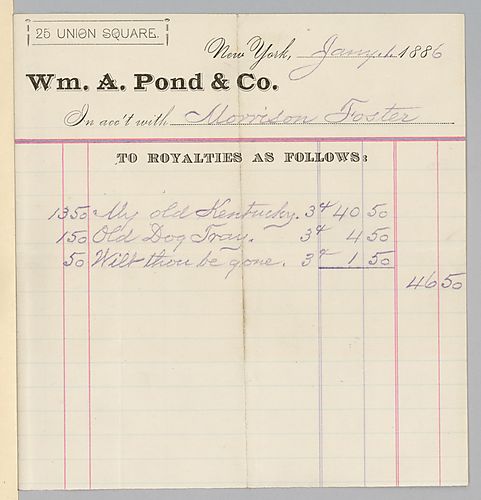 25 UNION SQUARE.
New York, Jany. 1. 1886
Wm. A. Pond & Co.
In acc't with Morrison Foster
TO ROYALTIES AS FOLLOWS:
1350 My old Kentucky. 3¢ 40 50
150 Old Dog Tray. 3¢ 4 50
50 Wilt thou be gone. 3¢ 1 50
46 50